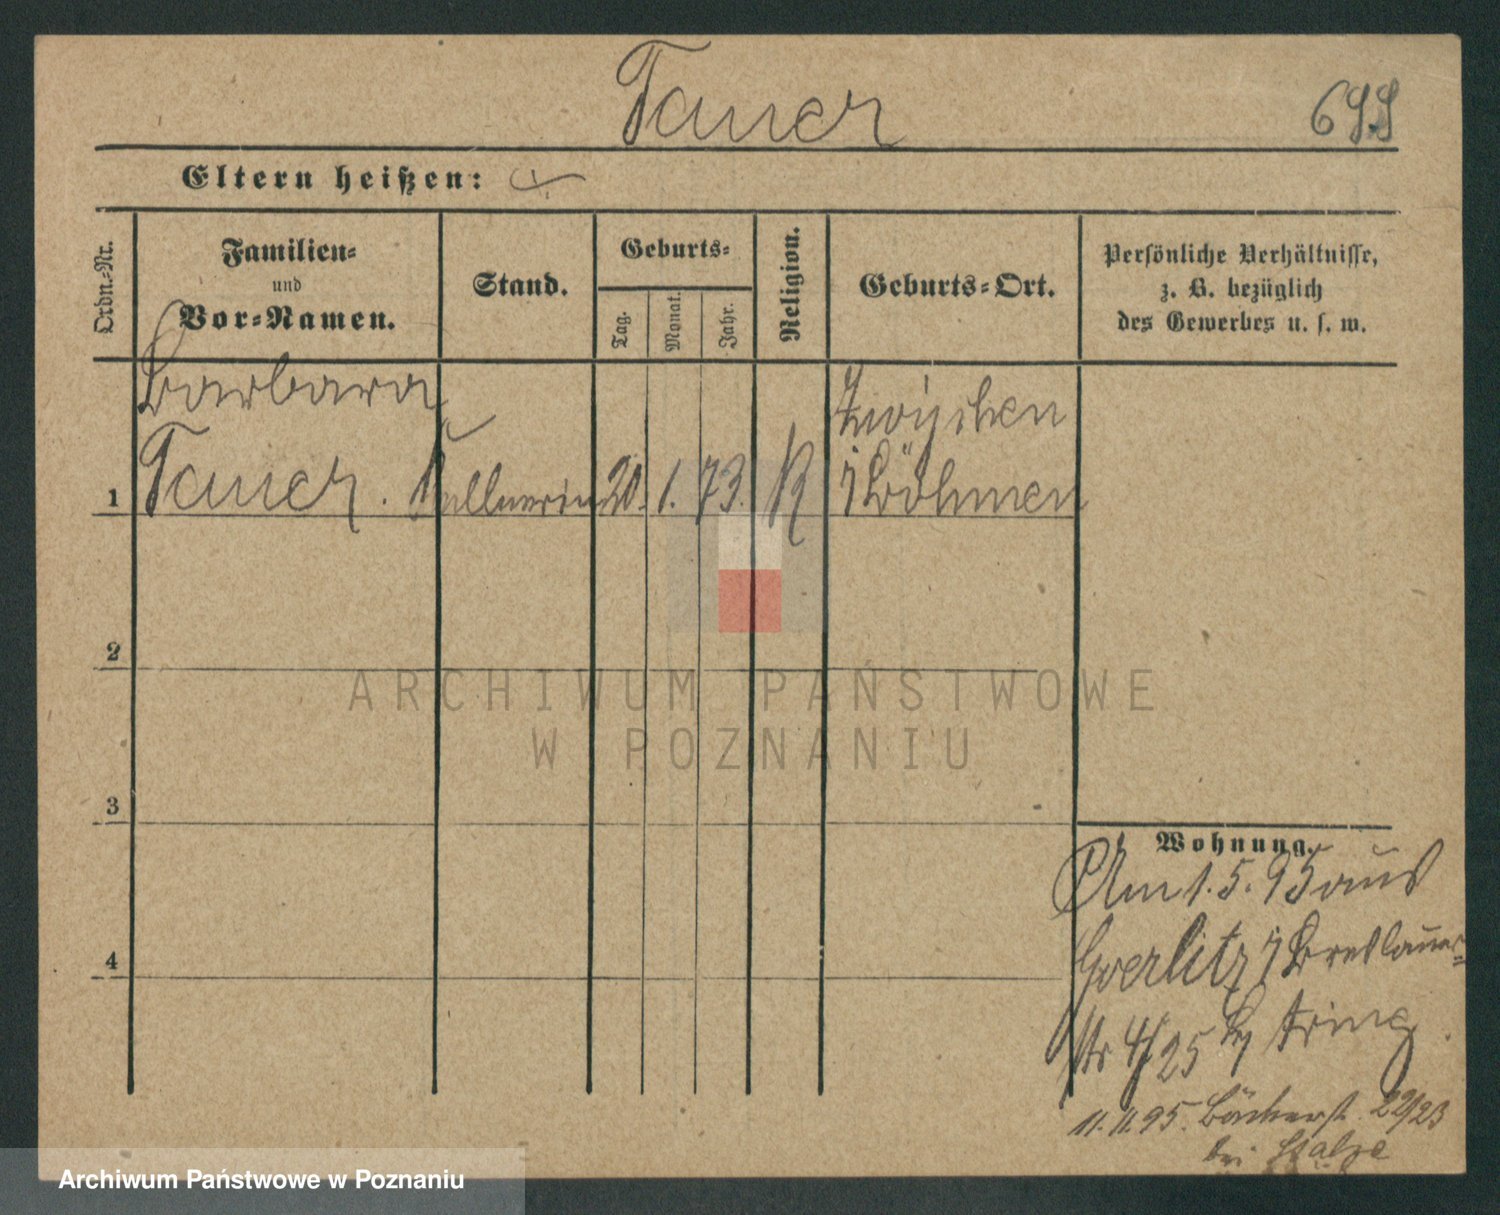 Tauer
699
Eltern heißen:
Ordn.-Nr.
Familien-
und
Vor-Namen.
Stand.
Geburts-
Tag.
Monat.
Jahr.
Religion.
Geburts-Ort.
Persönliche Verhältnisse,
z. B. bezüglich
des Gewerbes u. s. w.
Barbara
Tauer. Kellnerin 20. 1. 73. K
Zwischen
i Böhmen
1
2
3
4
ARCHIWUM PAŃSTWOWE
W POZNANIU
Wohnung.
Am 1. 5. 95 aus
Goerlitz i Breslauer-
str 4/25 by
11. 11. 95. Bäckerst. 22/23
bei
Archiwum Państwowe w Poznaniu